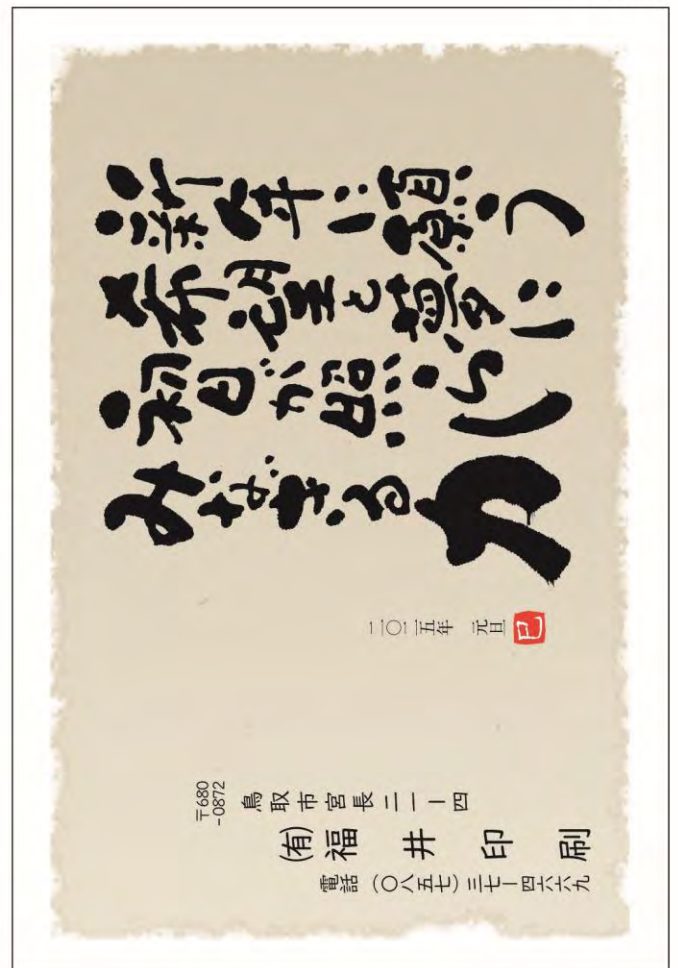 新年に願う
希望と夢に
初日が照らし
みなぎる力
二〇二五年 元旦 巳
〒680-0872
鳥取市宮長二一ー四
(有)福井印刷
電話(〇八五七)三七ー四六六九